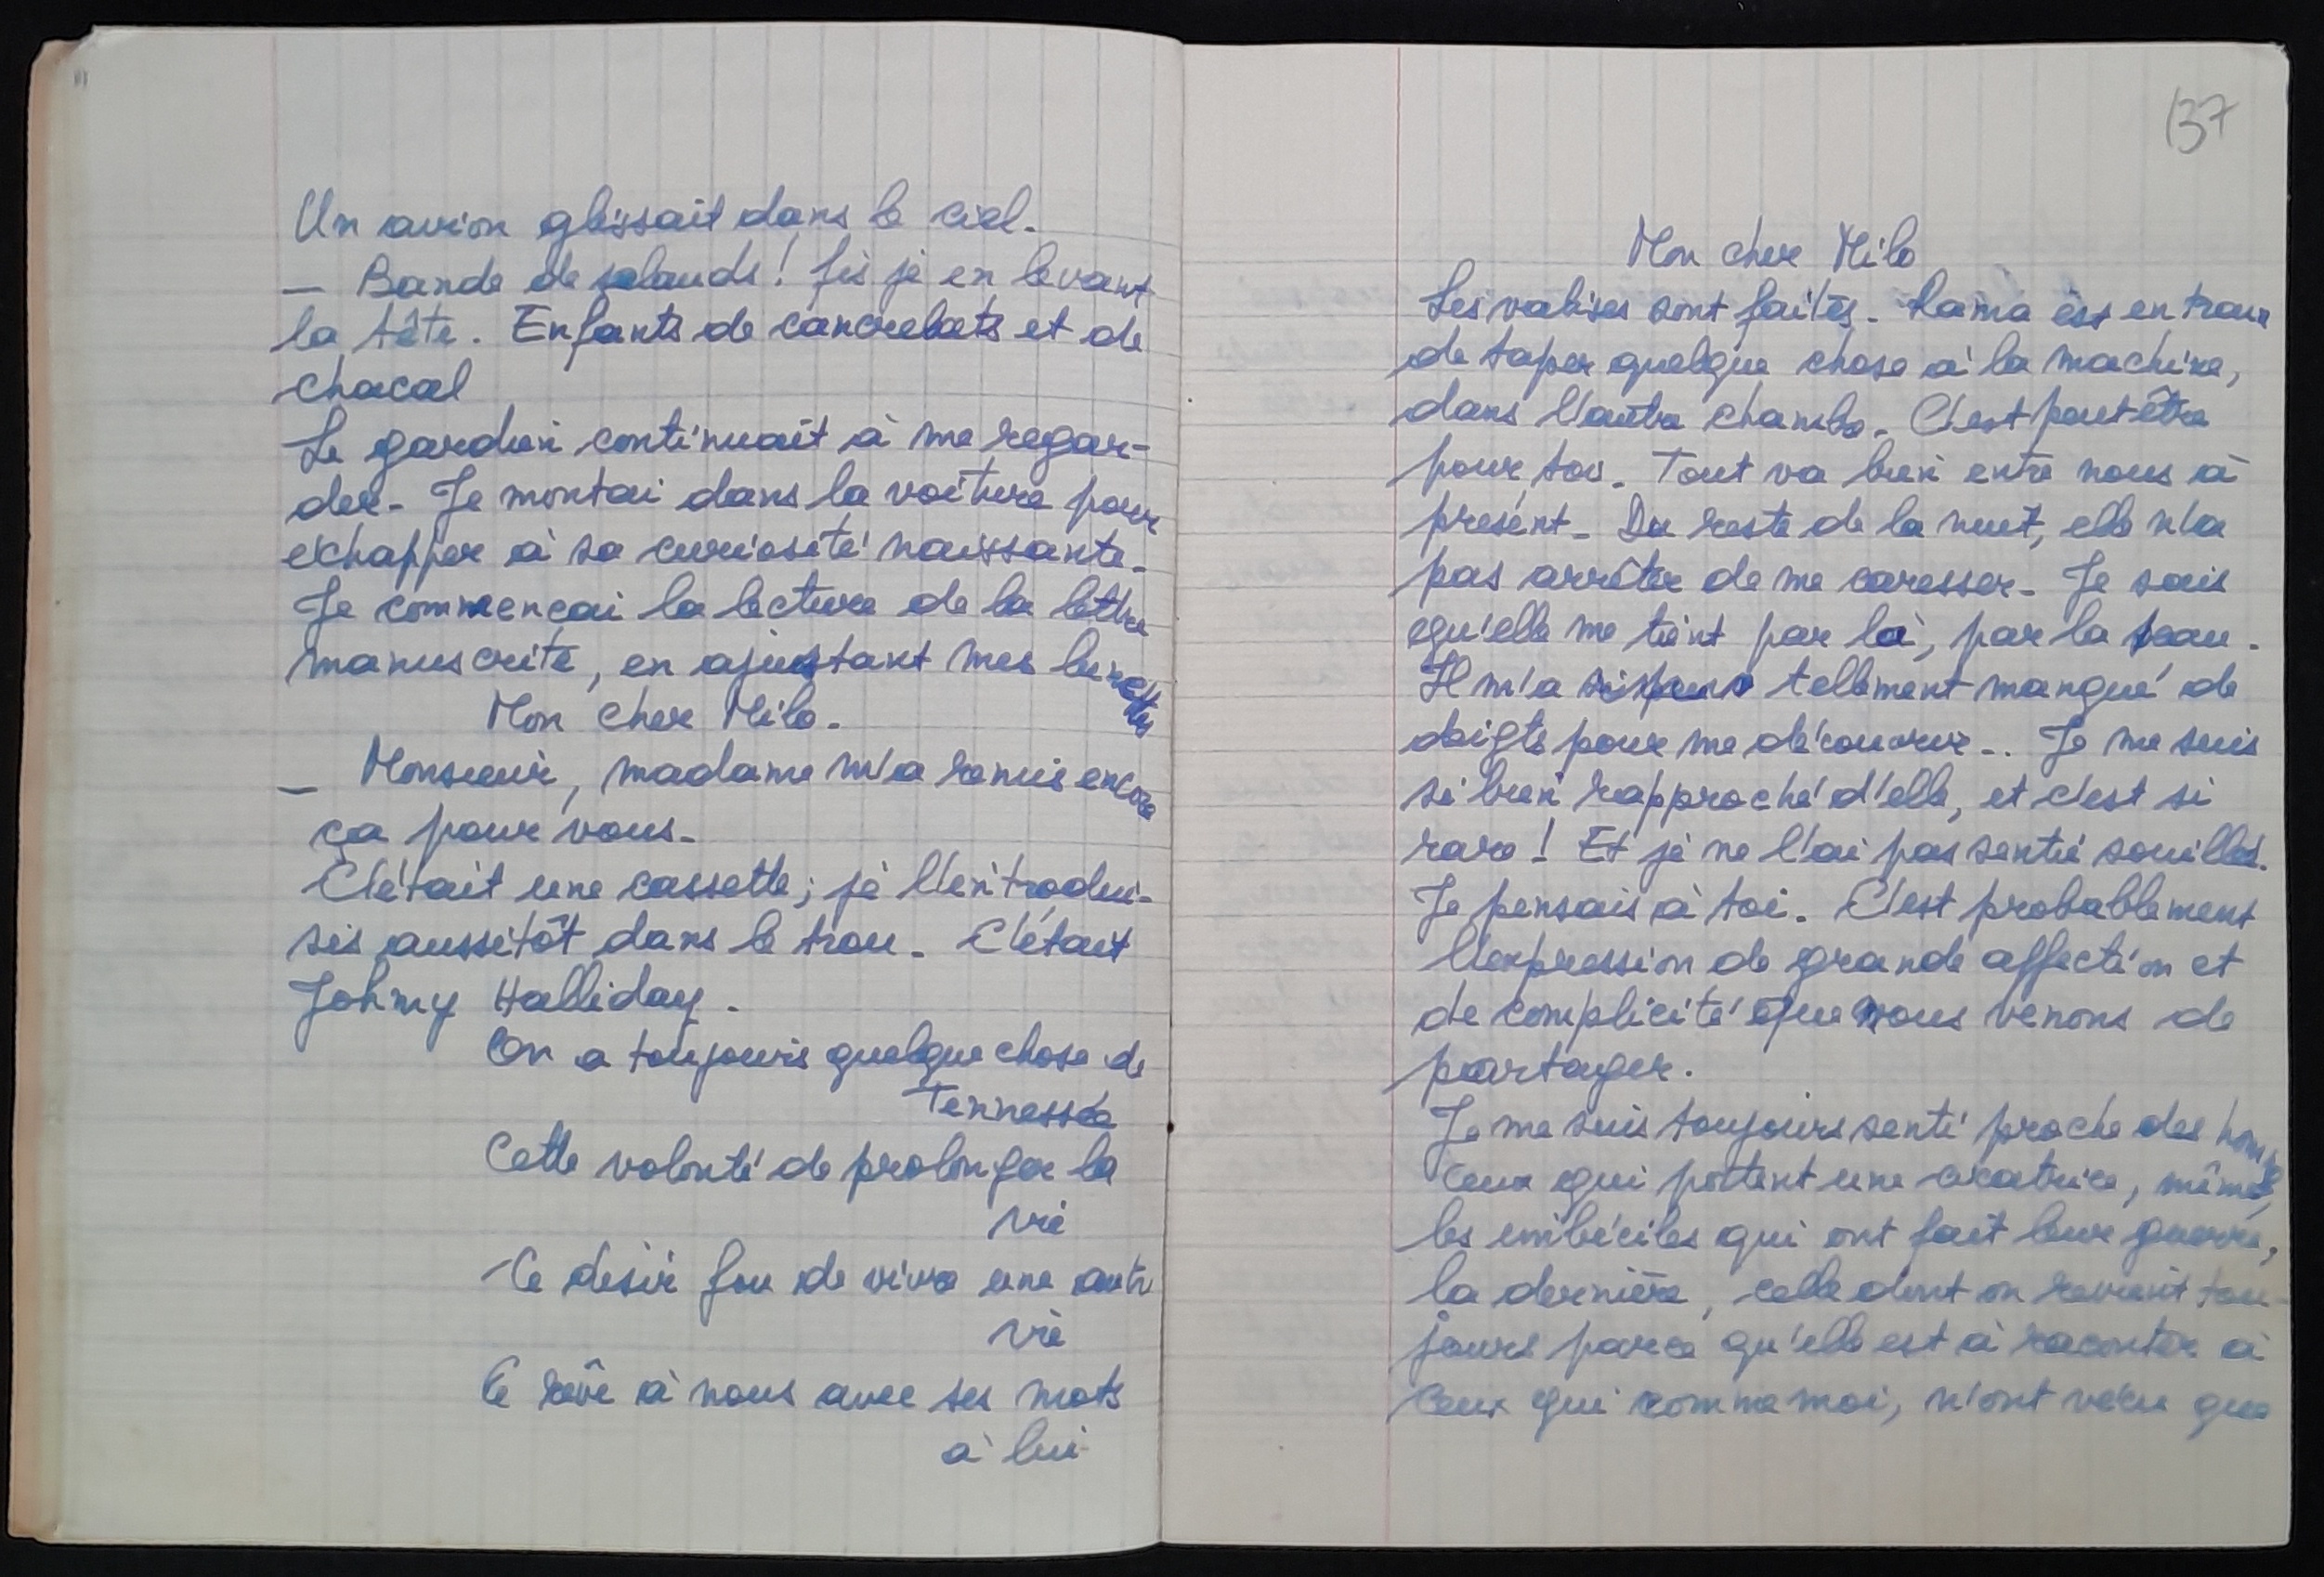 Un avion glissait dans le ciel.
— Bande de salauds ! fis je en levant
la tête. Enfants de cancrelats et de
chacal
Le gardien continuait à me regar-
der. Je montai dans la voiture pour
échapper à sa curiosité naissante.
Je commençai la lecture de la lettre
manuscrite, en ajustant mes lunettes
Mon cher Milo.
— Monsieur, madame m'a remis encore
ça pour vous.
C'était une cassette ; je l'introdui-
sis aussitôt dans le trou. C'était
Johnny Halliday.
On a toujours quelque chose de
Tennessée
Cette volonté de prolonger la
vie
Ce désir fou de vivre une autre
vie
Ce rêve à nous avec ses mots
à lui
137
Mon cher Milo
Les valises sont faites. Rama est en train
de taper quelque chose à la machine,
dans l'autre chambre. C'est peut être
pour toi. Tout va bien entre nous à
présent. Du reste de la nuit, elle n'a
pas arrêter de me caresser. Je sais
qu'elle me tient par là, par la peau.
Il m'a tellement manqué de
doigts pour me découvrir.. Je me suis
si bien rapproché d'elle, et c'est si
rare ! Et je ne l'ai pas sentie souillée.
Je pensais à toi. C'est probablement
l'expression de grande affection et
de complicité que nous venons de
partager.
Je me suis toujours senti proche des hommes
ceux qui portent une cicatrice, même
les imbéciles qui ont fait leur guerre,
la dernière, celle dont on revient tou-
jours parce qu'elle est à raconter à
ceux qui comme moi, n'ont vécu que